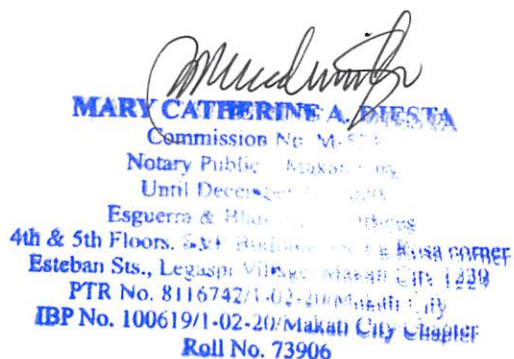 MARY CATHERINE A. DIESTA
Commission No. M-5
Notary Public Makati City
Until December
Esguerra & Law Offices
4th & 5th Floors, Rosa corner
Esteban Sts., Legaspi Village Makati City 1229
PTR No. 8116742/1-02-20/Makati City
IBP No. 100619/1-02-20/Makati City Chapter
Roll No. 73906